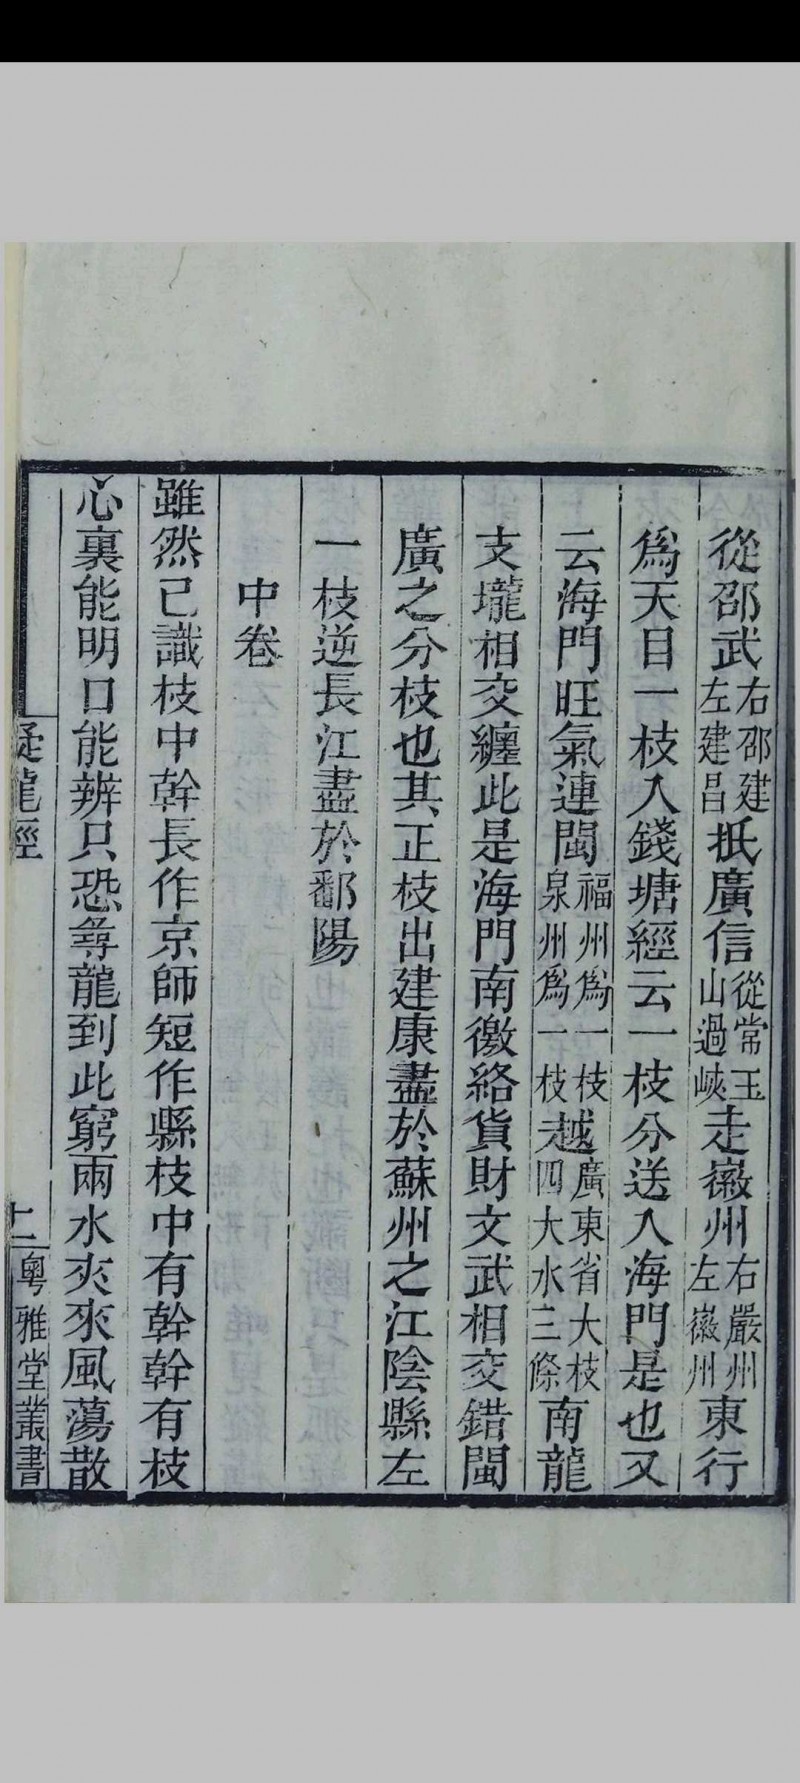 從邵武右邵建左建昌抵廣信從常玉山過峽走徽州右嚴州左徽州東行
爲天目一枝入錢塘經云一枝分送入海門是也又
云海門旺氣連閩福州爲一枝泉州爲一枝越廣東省大枝四大水三條南龍
支壠相交纏此是海門南徼絡貨財文武相交錯閩
廣之分枝也其正枝出建康盡於蘇州之江陰縣左
一枝逆長江盡於鄱陽
中卷
雖然已識枝中幹長作京師短作縣枝中有幹幹有枝
心裏能明口能辨只恐尋龍到此窮兩水夾來風蕩散
疑龍經
十二
粵雅堂叢書